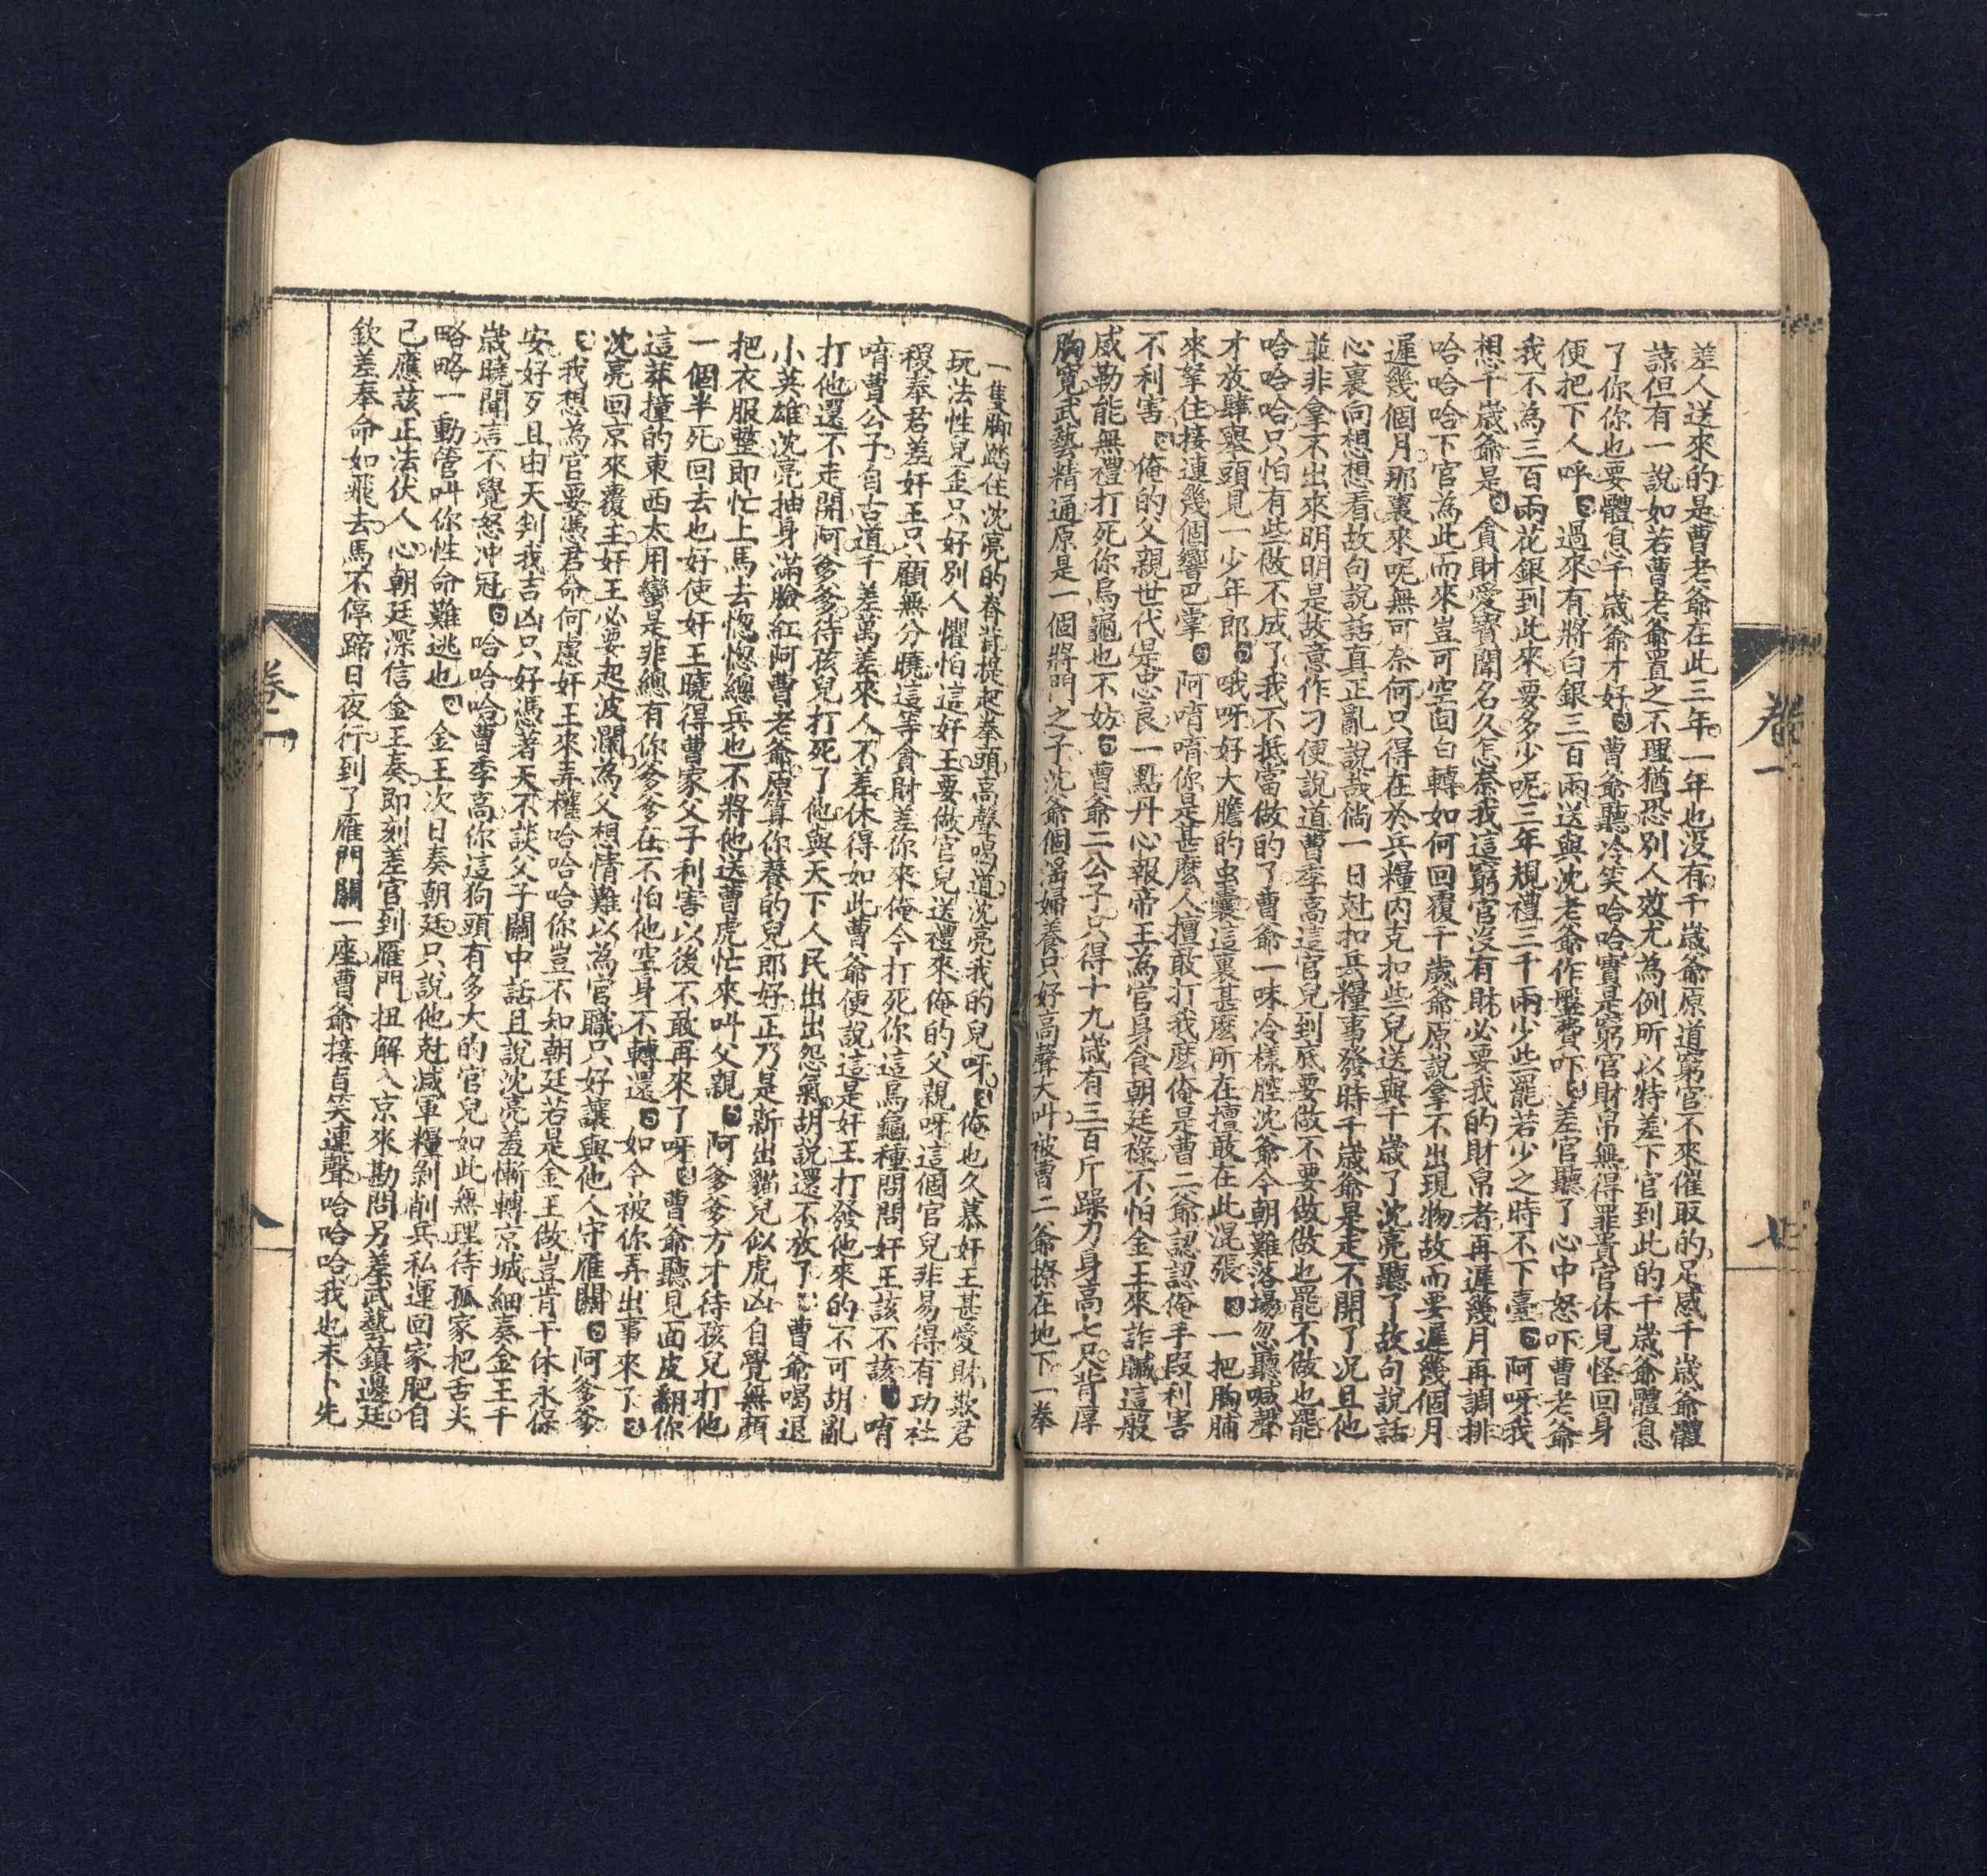 卷一
七
差人送來的是曹老爺在此三年一年也沒有千歲爺原道窮官不來催取的足感千歲爺體
諒但有一說如若曹老爺置之不理猶恐別人效尤為例所以特差下官到此的千歲爺體息
了你你也要體息千歲爺才好曹爺聽冷笑哈哈哈實是窮官財帛無得罪貴官休見怪回身
便把下人呼過來有將白銀三百兩送與沈老爺作盤費吓差官聽了心中怒吓曹老爺
我不為三百兩花銀到此來要多少呢三年規禮三千兩少些罷若少之時不下臺阿呀我
想千歲爺是貪財愛寶聞名久怎奈我這窮官沒有財必要我的財帛者再遲幾月再調排
哈哈哈下官為此而來豈可空回白轉如何回覆千歲爺原說拿不出現物故而要遲幾個月
遲幾個月那裏來呢無可奈何只得在於兵糧內克扣些兒送與千歲了沈亮聽了故句說話
心裏向想想看故句說話真正亂說哉倘一日尅扣兵糧事發時千歲爺是走不開了况且他
並非拿不出來明明是故意作刁便說道曹李高這官兒到底要做不要做做也罷不做也罷
哈哈哈只怕有些做不成了我不抵當做的了曹爺一味冷樣腔沈爺今朝難落場忽聽喊聲
才放肆舉頭見一少年郎哦呀好大膽的虫囊這裏甚麼所在擅敢在此混張一把胸脯
來拏住接連幾個響巴掌阿唷唷你是甚麼人擅敢打我麼俺是曹二爺認認俺手段利害
不利害俺的父親世代是忠良一點丹心報帝王為官身食朝廷祿不怕金王來詐贓這般
威勒能無禮打死你烏龜也不妨曹爺二公子只得十九歲有三百斤躁力身高七尺背厚
胸寬武藝精通原是一個將門之子沈爺個滛婦養只好高聲大叫被曹二爺撩在地下一拳
一隻脚踏住沈亮的脊背提起拳頭高聲喝道沈亮我的兒呀俺也久慕奸王甚愛財欺君
玩法性兒歪只好別人懼怕這奸王要做官兒送禮來俺的父親呀這個官兒非易得有功社
稷奉君差奸王只顧無分曉這等貪財差你來俺今打死你這烏龜種問問奸王該不該唷
唷曹公子自古道千差萬差來人不差休得如此曹爺便說這是奸王打發他來的不可胡亂
打他還不走開阿爹爹待孩兒打死了他與天下人民出出怨氣胡說還不放了曹爺喝退
小英雄沈亮抽身滿臉紅阿曹老爺原算你養的兒郎好正乃是新出貓兒似虎凶自覺無顏
把衣服整即忙上馬去悤悤總兵也不將他送曹虎忙來叫父親阿爹爹方才待孩兒打他
一個半死回去也好使奸王曉得曹家父子利害以後不敢再來了呀曹爺聽見面皮翻你
這莽撞的東西太用蠻是非總有你爹爹在不怕他空身不轉還如今被你弄出事來了
沈亮回京來覆主奸王必要起波瀾為父想情難以為官職只好讓與他人守雁關阿爹爹
我想為官要憑君命何慮奸王來弄權哈哈哈你豈不知朝廷若是金王做豈肯干休永保
安好歹且由天判我吉凶只好憑著天不談父子關中話且說沈亮羞慚轉京城細奏金王千
歲曉聞言不覺怒冲冠哈哈哈曹李高你這狗頭有多大的官兒如此無理待孤家把舌尖
略略一動管叫你性命難逃也金王次日奏朝廷只說他尅減軍糧剝削兵私運回家肥自
己應該正法伏人心朝廷深信金王奏即刻差官到雁門扭解入京來勘問另差武藝鎮邊廷
欽差奉命如飛去馬不停蹄日夜行到了雁門關一座曹爺接旨笑連聲哈哈哈我也未卜先
卷二
八